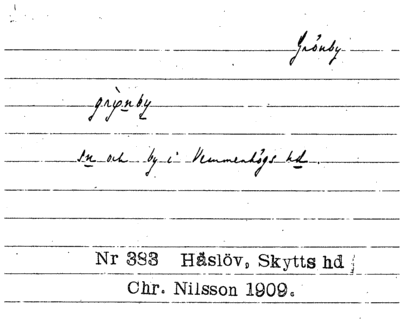 Grönby
grø̀nby
sn och by i Vemmenhögs hd.
Nr 383 Håslöv, Skytts hd
Chr. Nilsson 1909.